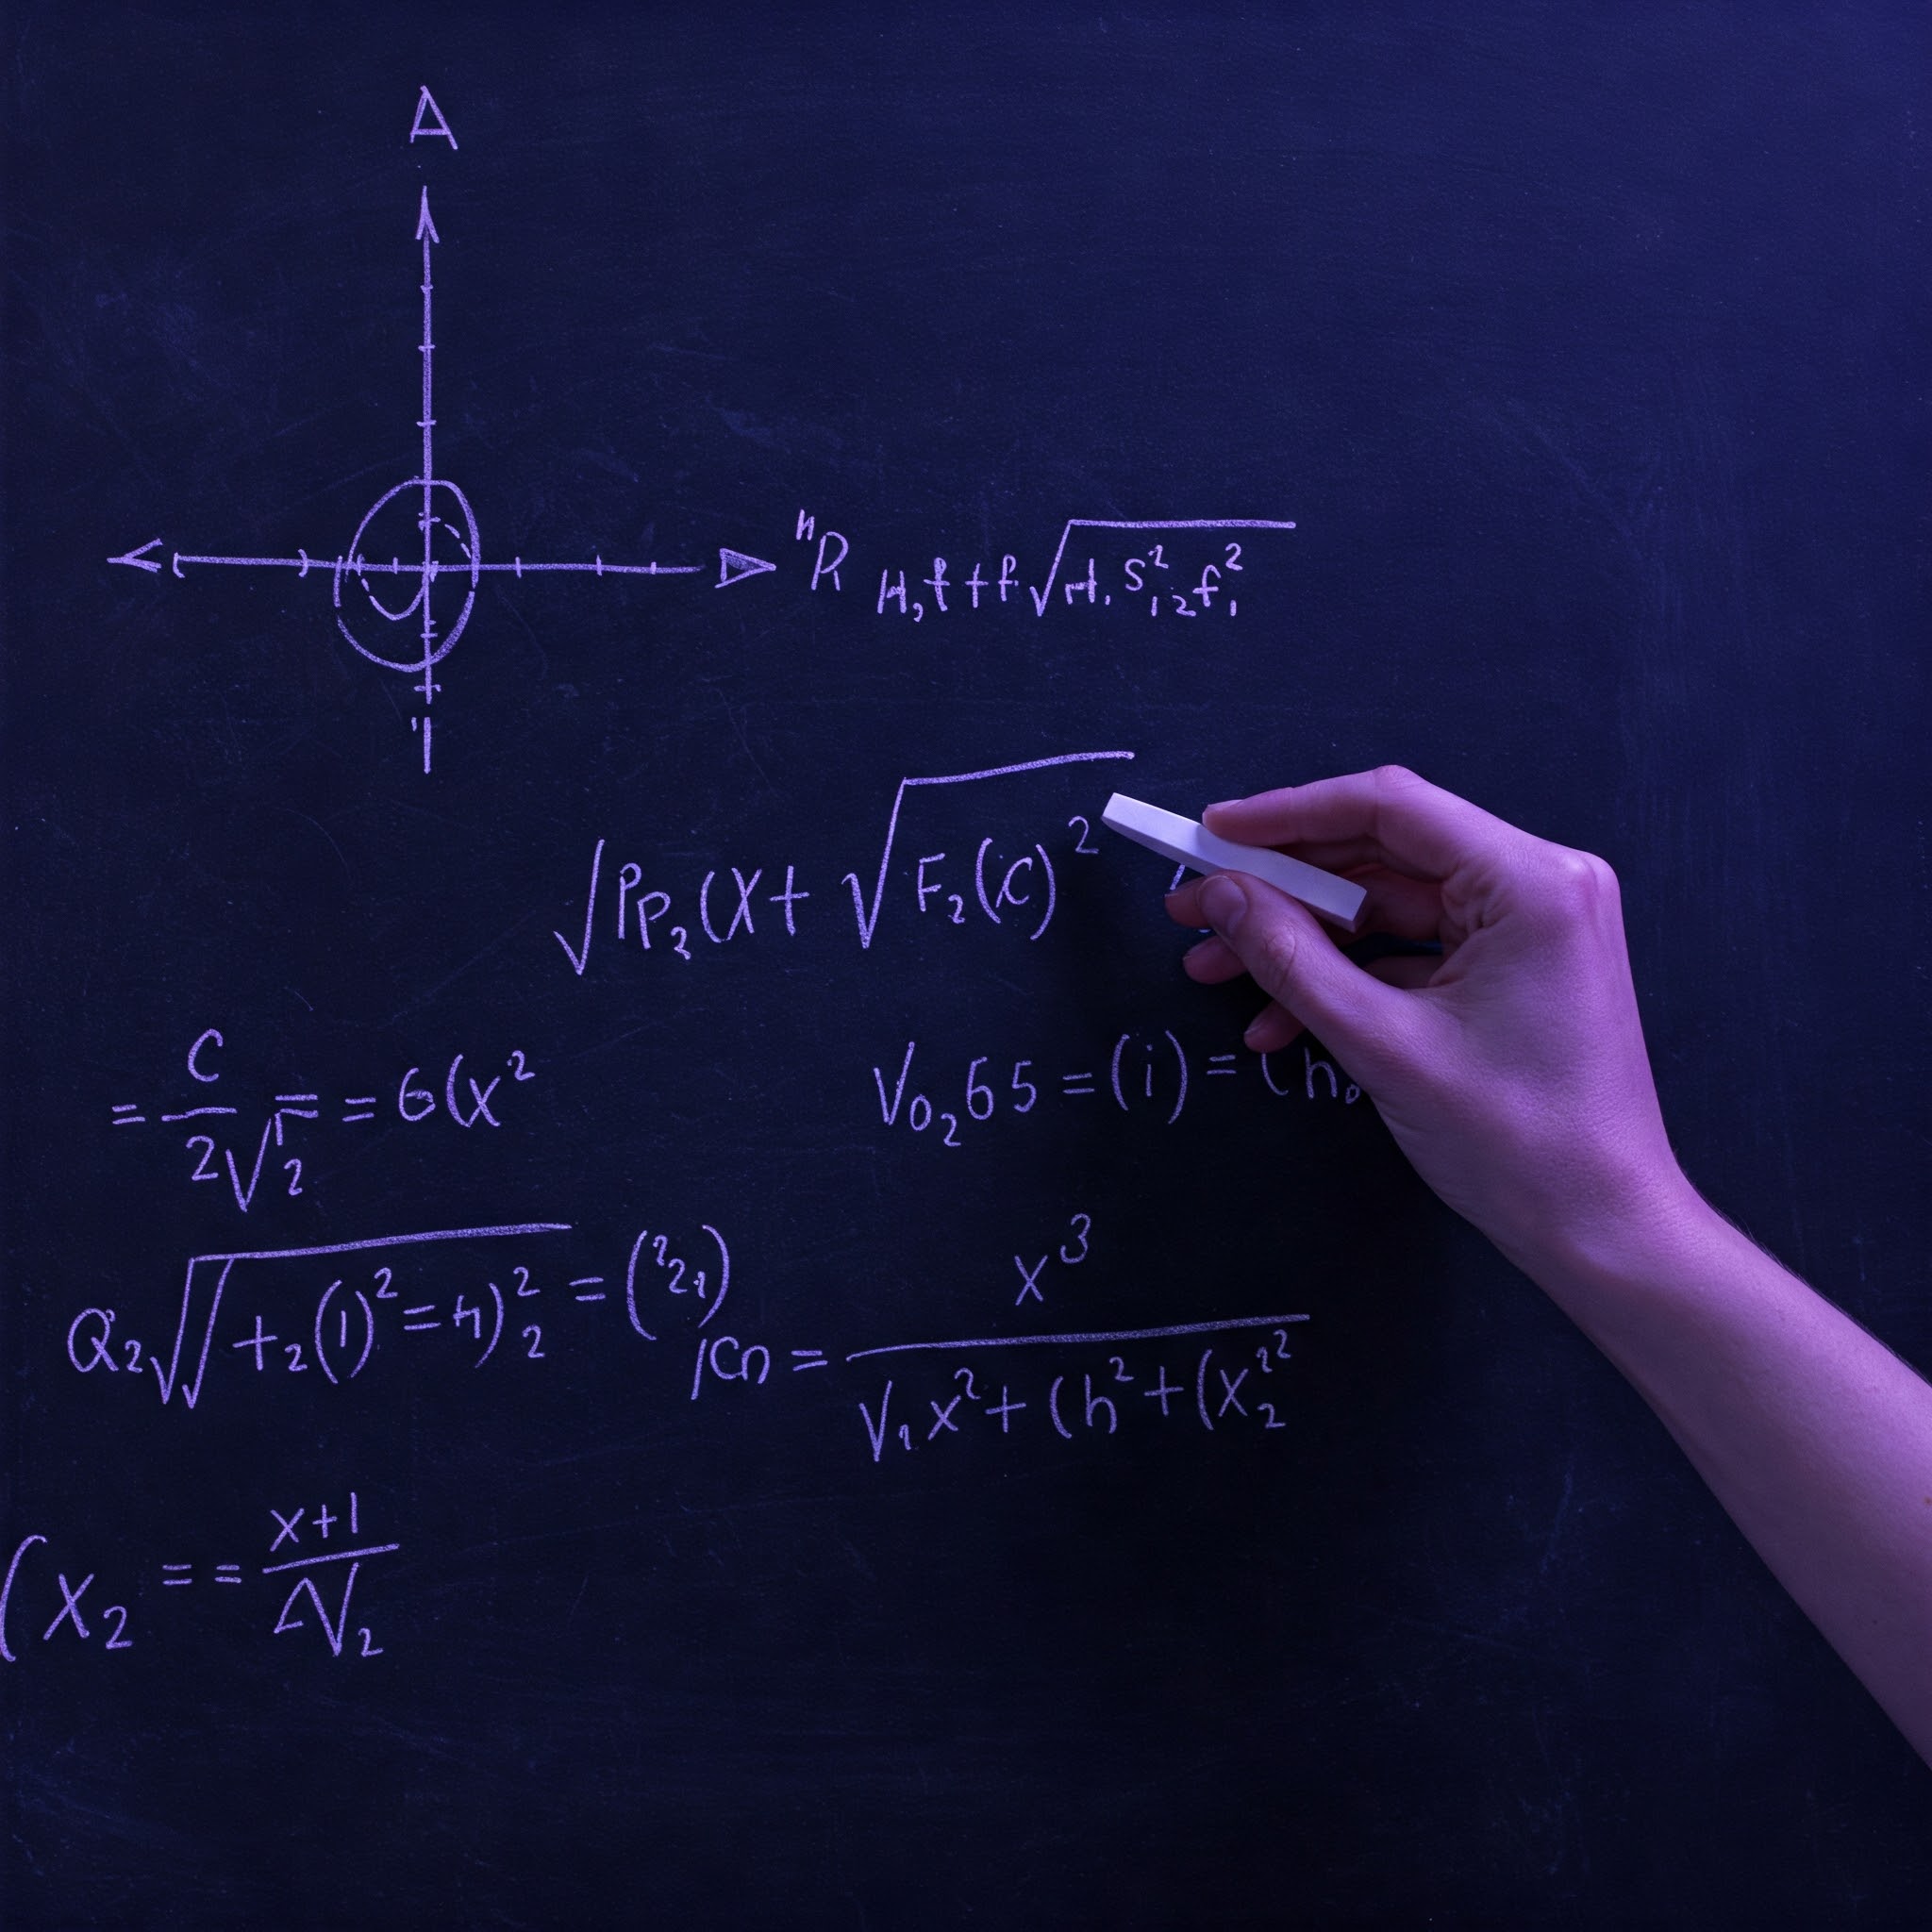 A
"R H,f+f√H,S²₁,₂f₁²
√PP₂(X+√F₂(x)²
=C/2√Γ/2=6(x²
V₀₂65=(i)=(h₀
Q₂√√+₂(1)²=4)²₂=(²2₁)
ICn=x³/√₁x²+(h²+(x₂²²
(X₂==x+1/√₂